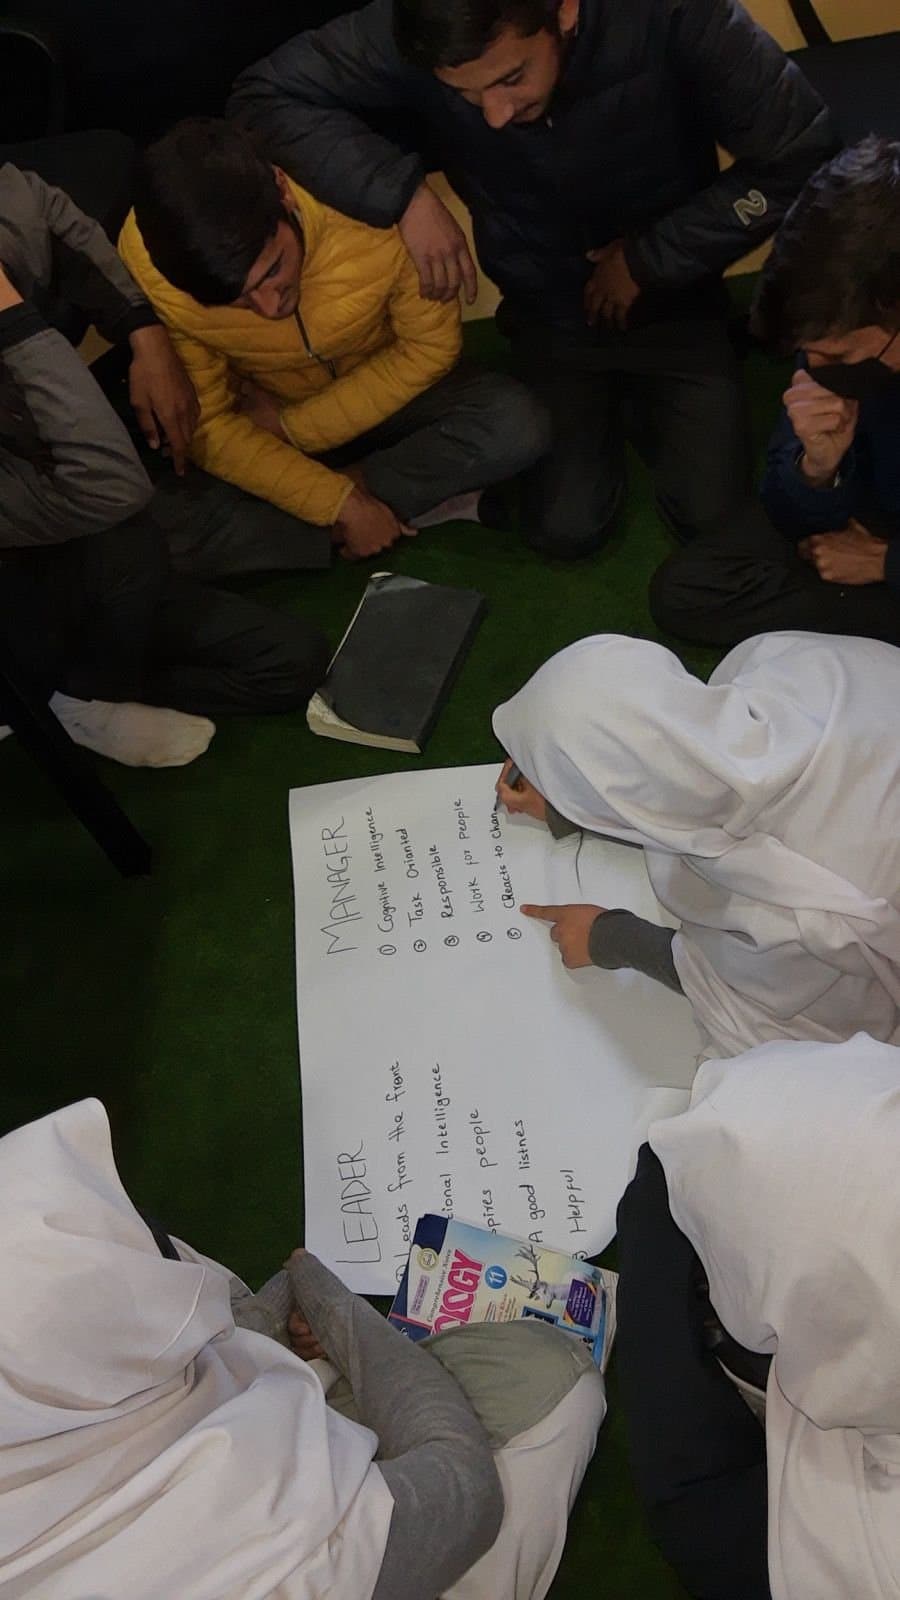 MANAGER
① Cognitive Intelligence
② Task Orianted
③ Responsible
④ Work for people
⑤ Reacts to Chan
LEADER
Leads from the front
tional Intelligence
spires people
A good listnes
Helpful
Comprehensive Notes
OLOGY
11